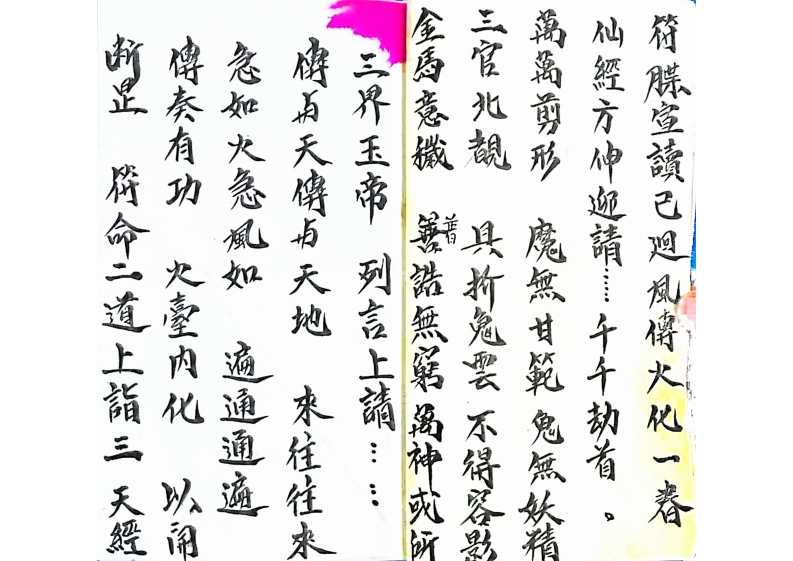 符牒宣讀己迴風傳火化一春
仙經方伸迎請……千千劫首。
萬萬剪形 魔無甘範鬼無妖精
三官北覩 具折兔雲不得容影
金馬意穢 善普誥無窮萬神或所
三界玉帝 列言上請……
傳与天傳与天地 來往往來
急如火急風如 遍通通遍
傳奏有功 火臺內化 以開
断㞐 符命二道上詣三天經